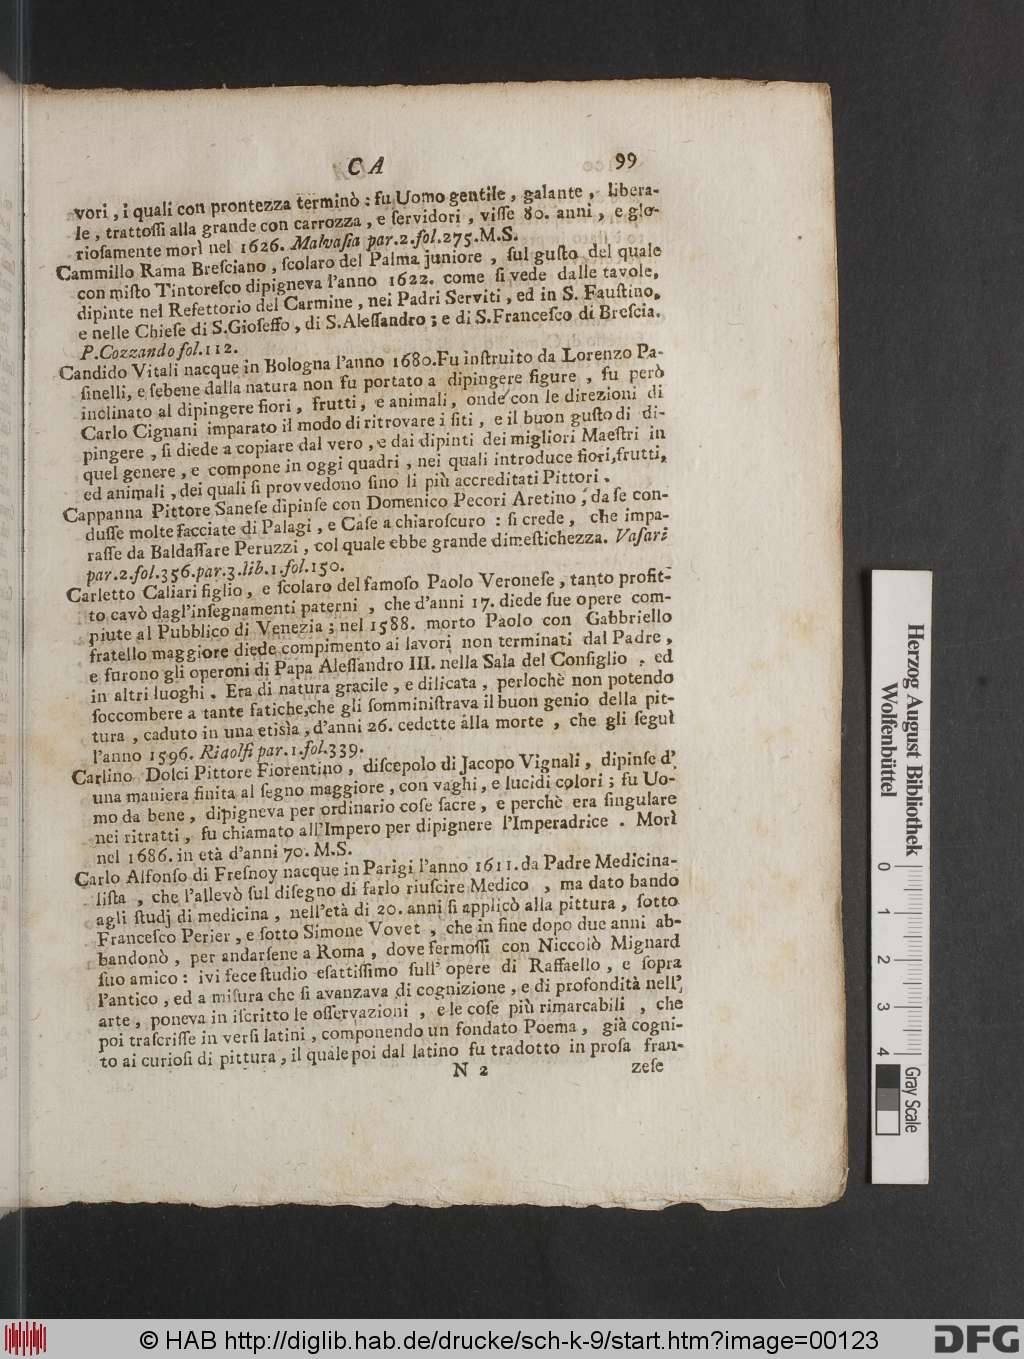 C A 99
vori, i quali con prontezza terminò: fu Uomo gentile, galante, libera-
le, trattoſſi alla grande con carrozza, e ſervidori, viſſe 80. anni, e glo-
rioſamente morì nel 1626. Malvaſia par.2.fol.275.M.S.
Cammillo Rama Breſciano, ſcolaro del Palma juniore, ſul guſto del quale
con miſto Tintoreſco dipigneva l'anno 1622. come ſi vede dalle tavole,
dipinte nel Refettorio del Carmine, nei Padri Serviti, ed in S. Fauſtino,
e nelle Chieſe di S.Gioſeffo, di S.Aleſſandro; e di S.Franceſco di Breſcia.
P.Cozzando fol.112.
Candido Vitali nacque in Bologna l'anno 1680.Fu inſtruito da Lorenzo Pa-
ſinelli, e ſebene dalla natura non fu portato a dipingere figure, fu però
inclinato al dipingere fiori, frutti, e animali, onde con le direzioni di
Carlo Cignani imparato il modo di ritrovare i ſiti, e il buon guſto di di-
pingere, ſi diede a copiare dal vero, e dai dipinti dei migliori Maeſtri in
quel genere, e compone in oggi quadri, nei quali introduce fiori,frutti,
ed animali, dei quali ſi provvedono ſino li più accreditati Pittori.
Cappanna Pittore Saneſe dipinſe con Domenico Pecori Aretino, da ſe con-
duſſe molte facciate di Palagi, e Caſe a chiaroſcuro: ſi crede, che impa-
raſſe da Baldaſſare Peruzzi, col quale ebbe grande dimeſtichezza. Vaſari
par.2.fol.356.par.3.lib.1.fol.150.
Carletto Caliari figlio, e ſcolaro del famoſo Paolo Veroneſe, tanto profit-
to cavò dagl'inſegnamenti paterni, che d'anni 17. diede ſue opere com-
piute al Pubblico di Venezia; nel 1588. morto Paolo con Gabbriello
fratello maggiore diede compimento ai lavori non terminati dal Padre,
e furono gli operoni di Papa Aleſſandro III. nella Sala del Conſiglio, ed
in altri luoghi. Era di natura gracile, e dilicata, perlochè non potendo
ſoccombere a tante fatiche,che gli ſomminiſtrava il buon genio della pit-
tura, caduto in una etisìa, d'anni 26. cedette alla morte, che gli ſeguì
l'anno 1596. Ridolfi par.1.fol.339.
Carlino Dolci Pittore Fiorentino, diſcepolo di Jacopo Vignali, dipinſe d'
una maniera finita al ſegno maggiore, con vaghi, e lucidi colori; fu Uo-
mo da bene, dipigneva per ordinario coſe ſacre, e perchè era ſingulare
nei ritratti, fu chiamato all'Impero per dipignere l'Imperadrice. Morì
nel 1686. in età d'anni 70. M.S.
Carlo Alfonſo di Freſnoy nacque in Parigi l'anno 1611.da Padre Medicina-
liſta, che l'allevò ſul diſegno di farlo riuſcire Medico, ma dato bando
agli ſtudj di medicina, nell'età di 20. anni ſi applicò alla pittura, ſotto
Franceſco Perier, e ſotto Simone Vovet, che in fine dopo due anni ab-
bandonò, per andarſene a Roma, dove fermoſſi con Niccolò Mignard
ſuo amico: ivi fece ſtudio eſattiſſimo ſull' opere di Raffaello, e ſopra
l'antico, ed a miſura che ſi avanzava di cognizione, e di profondità nell'
arte, poneva in iſcritto le oſſervazioni, e le coſe più rimarcabili, che
poi traſcriſſe in verſi latini, componendo un fondato Poema, già cogni-
to ai curioſi di pittura, il quale poi dal latino fu tradotto in proſa fran-
N 2 zeſe
Herzog August Bibliothek
Wolfenbüttel
0 1 2 3 4
Gray Scale
© HAB http://diglib.hab.de/drucke/sch-k-9/start.htm?image=00123
DFG